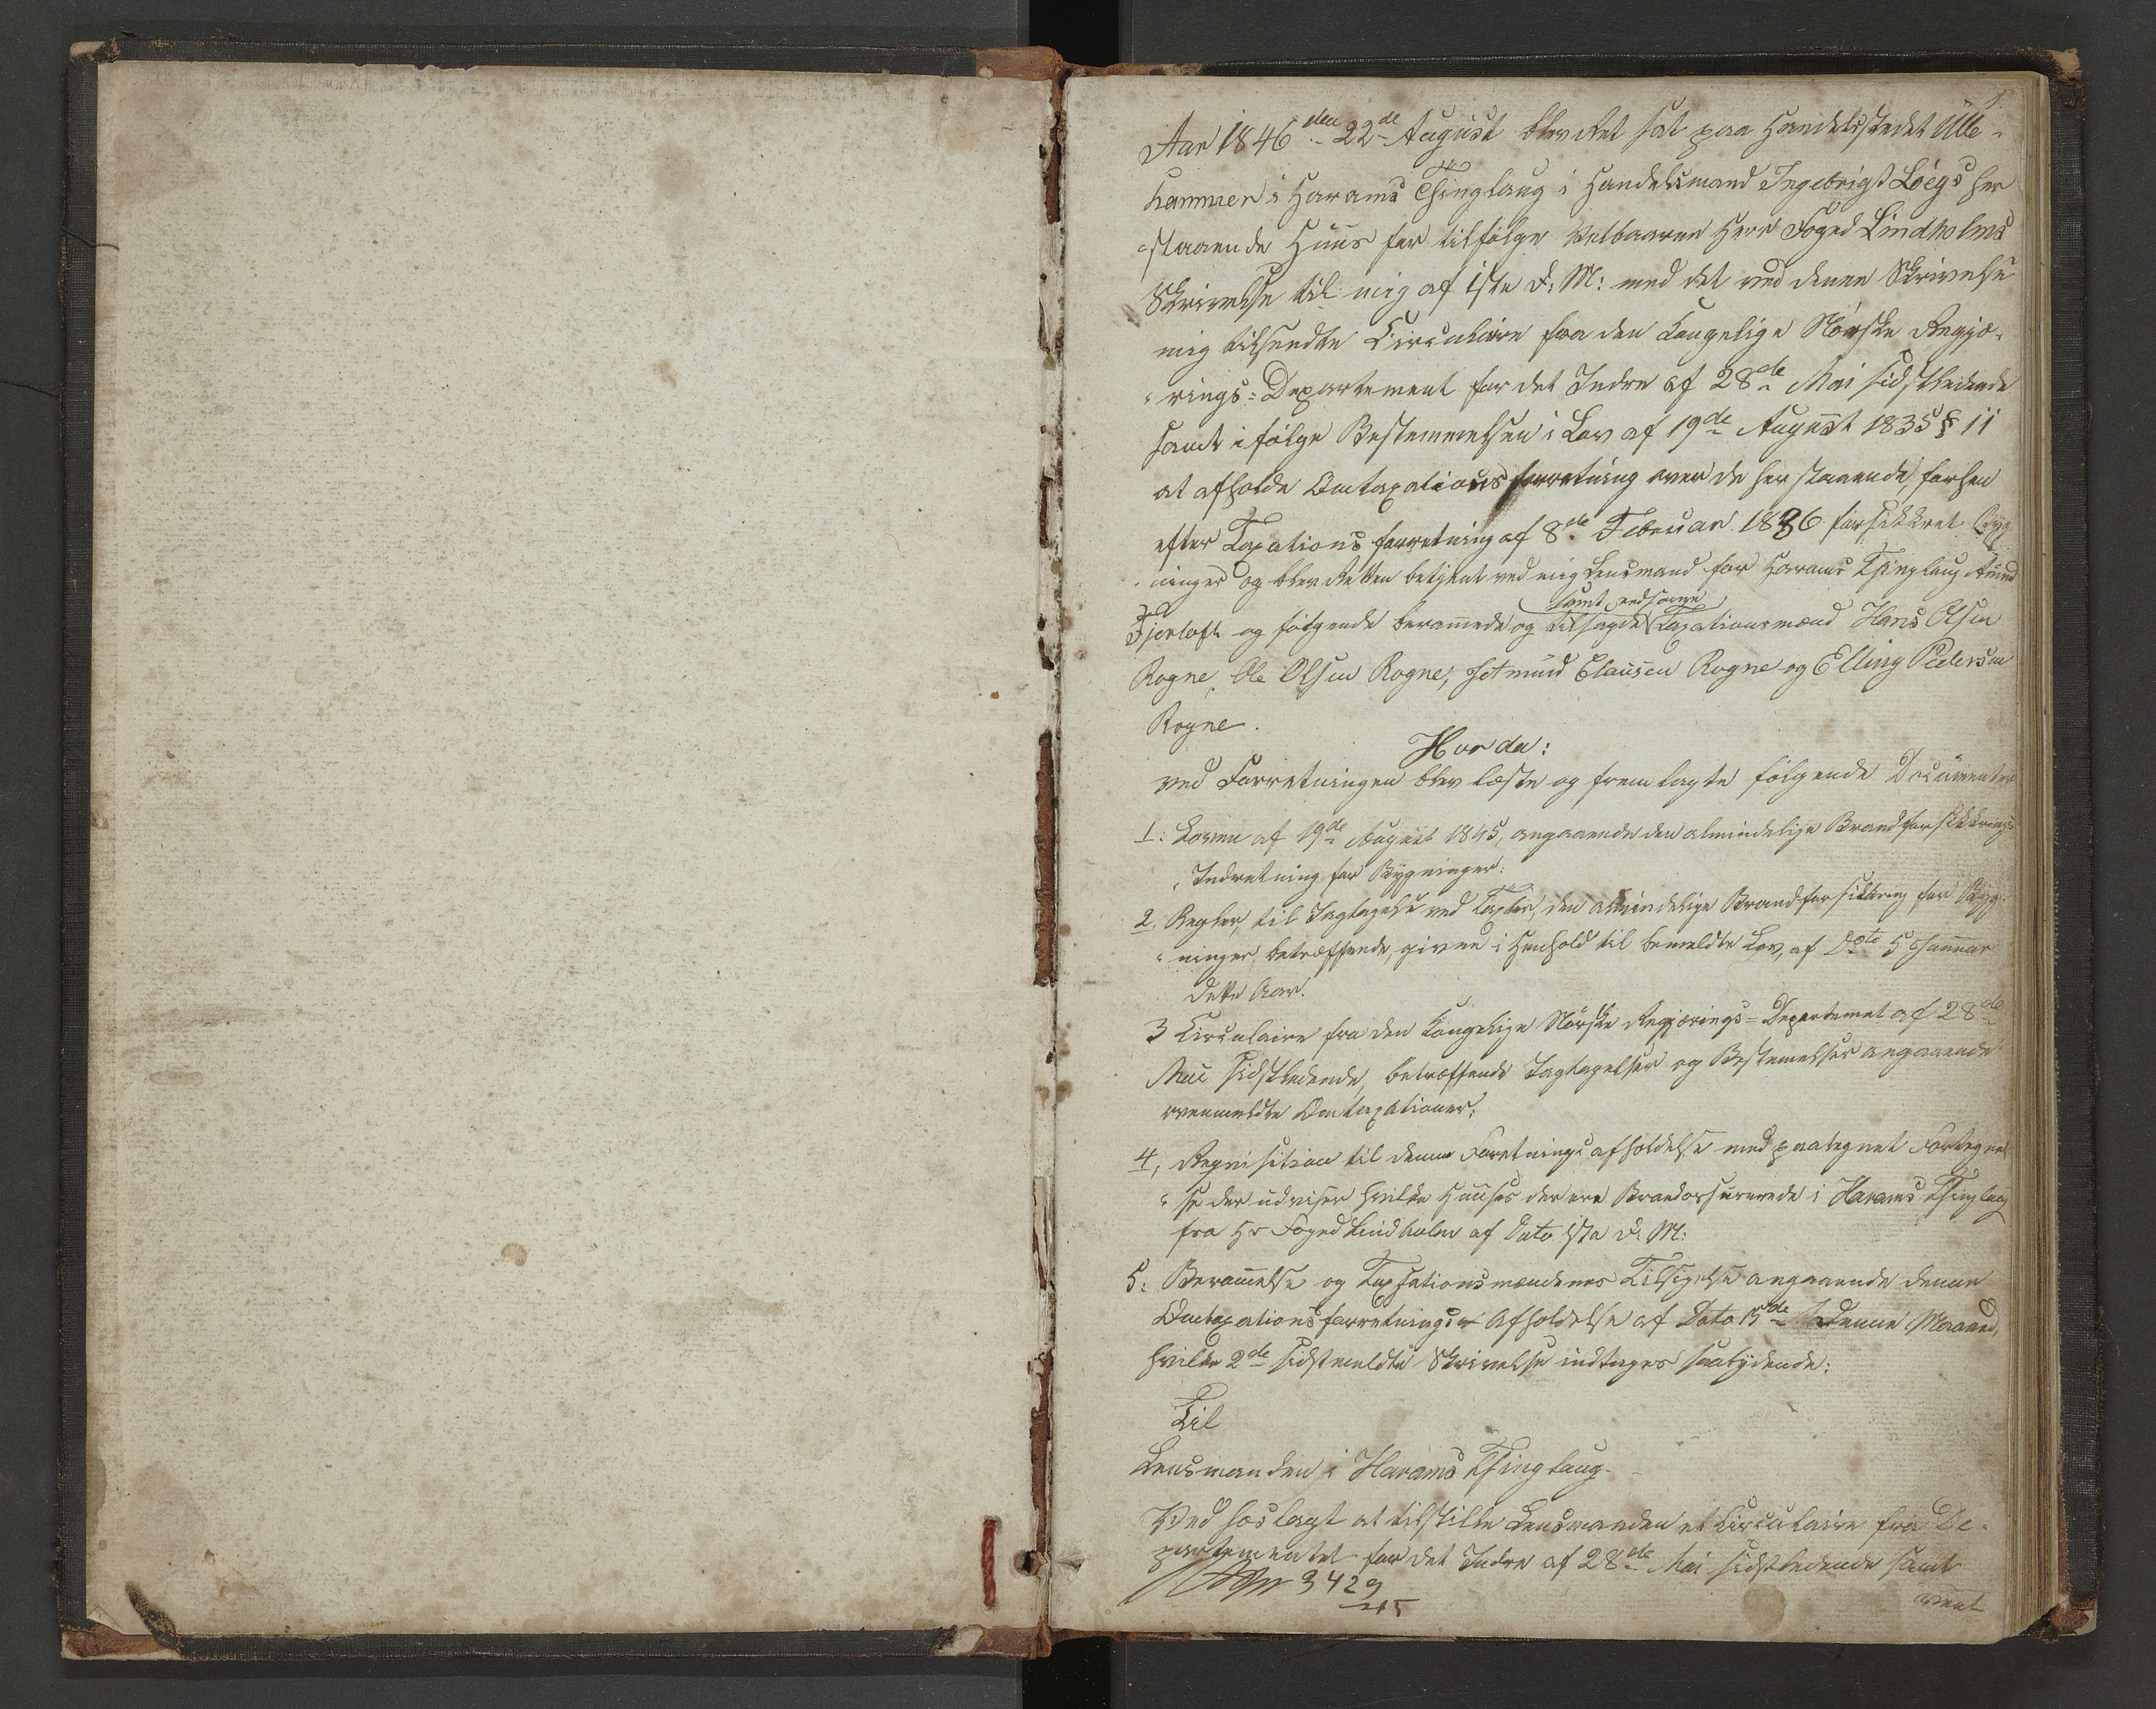 1.
Aar 1846 den 22de August blev Ret sat paa Handelsstedet Ulle-
hammer i Harams Thinglaug i Handelsmand Ingebrigt Löegs her
staaende Huus for tilfølge Velbaarne Herr Foged Lindholms
Skrivelse til mig af 1ste d: M: med det ved denne Skrivelse
mig tilsendte Circulaire fra den Kongelige Norske Regje-
rings-Departement for det Indre af 28de Mai sidstledende
samt ifølge Bestemmelsen i Lov af 19de August 1835 § 11
at afholde Omtaxationsforretning over de her staaende, forhen
efter Taxationsforretning af 8de Februar 1836 forsikkret Byg
ninger og blev Retten betjent ved mig Lensmand for Harams Thinglaug Amund
Fjørtoft og følgende beramede og tilsagde Taxationsmænd Hans Olsen
samt edsorne
Rogne, Ole Olsen Rogne, Clausen Rogne og Elling Pedersen
Rogne.
Hvorda:
ved Forretningen blev læste og fremlagte følgende Documenter
1: Loven af 19de August 1845, angaaende den almindelige Brandforsikkrings
Indretning for Bygninger:
2. Regler, til Iagttagelse ved Taxter, den almindelige Brandforsikkring for Byg-
ninger betræffende, givne i Henhold til bemeldte Lov, af Dato 5 Januar
dette Aar.
3 Circulaire fra den Kongelige Norske Regjerings-Departemet af 28de
Mai sidstledende, betræffende Iagttagelser og Bestemelser angaaende
ovenmeldte Omtaxationer;
4, Reqvisition til denne Foretnings afholdelse med paategnet Fortegnel
se der udviser hvilke Huuse der ere Brandassurerede i Harams Thinglaug
fra Hr Foged Lindholm af Dato 1ste d. M:
5: Beramelse og Taxationsmændenes Tilsigelse angaaende denne
Omtaxationsforretnings Afholdelse af Dato 15de denne Maaned,
hvilke 2de sidstmeldte Skrivelse indtages saalydende:
Til
Lensmanden i Harams Thinglaug.
Ved hoslagt at tilstille Lensmanden et Circulaire fra De-
partementet for det Indre af 28de Mai sidstledende samt
3429
45